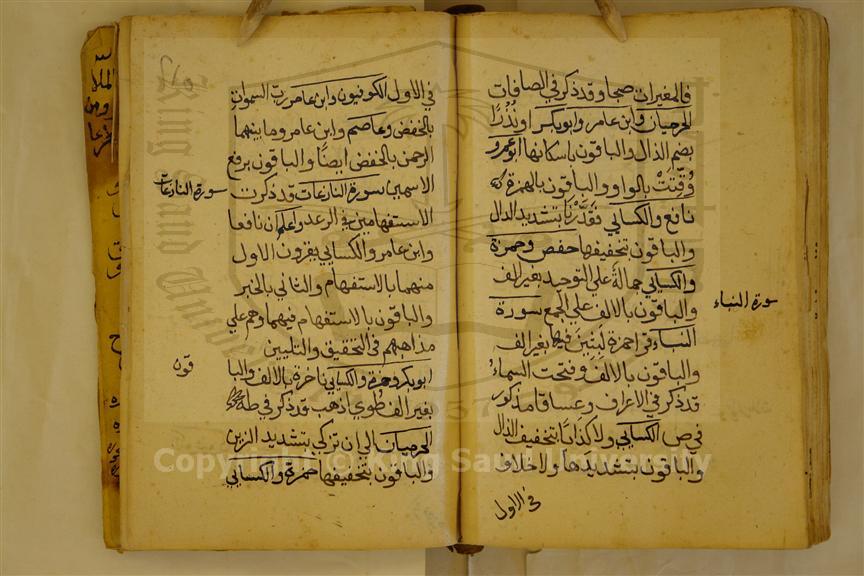 فالمغيرات صبحا وقد ذكر في الصافات
الحرميان وابن عامر وابوبكر اونُذُرًا
بضم الذال والباقون باسكانها ابو عمرو
وُقِّتَتْ بالواو والباقون بالهمزة
نافع والكسايي فَقَدَّرْنا بتشديد الدال
والباقون بتخفيفها حفص وحمزة
والكسايي جمالة علي التوحيد بغير الف
والباقون بالالف علي الجمع سورة
سورة النباء
النباء قرا حمزة لَبِثِينَ فيها بغير الف
والباقون بالالف وفتحت السماء
قد ذكر في الاعراف وغساقا مذكور
في ص الكسايي ولا كذابا بتخفيف الذال
والباقون بتشديدها ولا خلاف
في الاول
في الاول الكوفيون وابن عامر رب السموات
بالخفض وعاصم وابن عامر وما بينهما
الرحمن بالخفض ايضا والباقون برفع
الاسمين سورة النازعات قد ذكرت
سورة النازعات
الاستفهامين في الرعد واعلم ان نافعا
وابن عامر والكسايي يقرون الاول
منهما بالاستفهام والثاني بالخبر
والباقون بالاستفهام فيهما وهم علي
مذاهبهم في التحقيق والتليين
ابوبكر وحمزة والكسايي ناخرة بالالف والبا
قون
بغير الف طوي اذهب قد ذكر في طه
الحرميان الي ان تزكي بتشديد الزين
والباقون بتخفيفها حمزة والكسايي
Copyright © King Saud University
King Saud University
1957